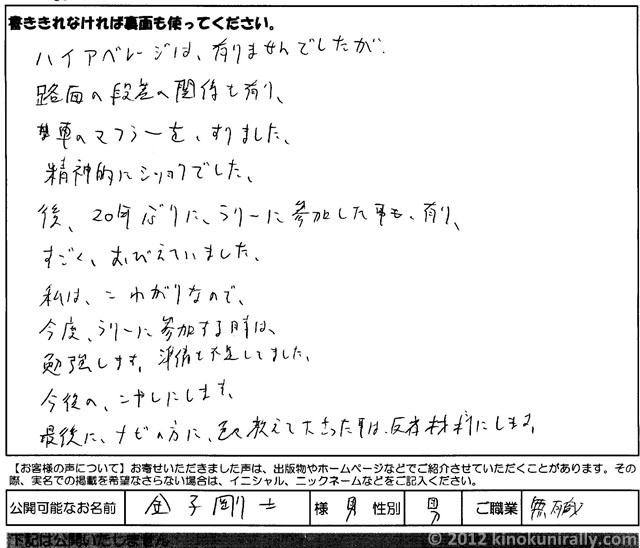 書ききれなければ裏面も使ってください。
ハイアベレージは、有りませんでしたが、
路面の段差の関係も有り、
車のマフラーを、すりました、
精神的にショックでした、
後、20年ぶりに、ラリーに参加した事も、有り、
すごく、おびえていました、
私は、こわがりなので、
今度、ラリーに参加する時は、
勉強します。準備も不足してました、
今後の、こやしにします、
最後に、ナビの方に、色々教えて下さった事は、反省材料にします。
【お客様の声について】お寄せいただきました声は、出版物やホームページなどでご紹介させていただくことがあります。その
際、実名での掲載を希望なさらない場合は、イニシャル、ニックネームなどをご記入ください。
公開可能なお名前 金子剛士 様 男 性別 男 ご職業 無職
下記は公開いたしません
© 2012 kinokunirally.com